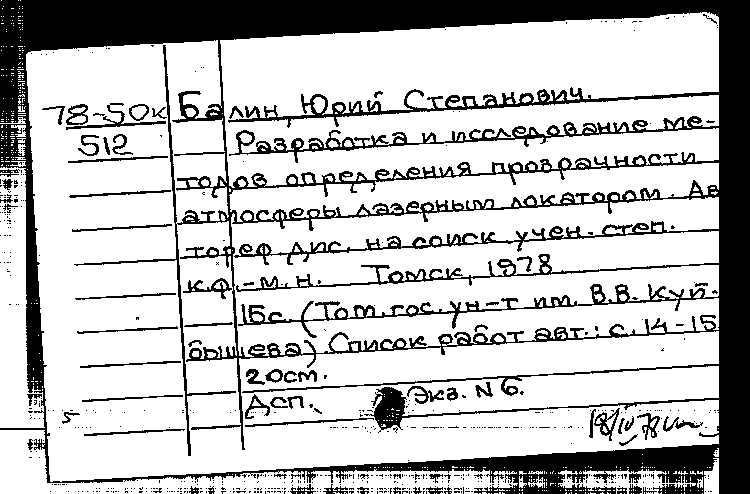 78-50к Балин, Юрий Степанович.
512 Разработка и исследование ме-
тодов определения прозрачности
атмосферы лазерным локатором. Ав
тореф. дис. на соиск. учен. степ.
к.ф.-м.н. Томск, 1978
15с. (Том. гос. ун-т им. В.В. Куй-
бышева) Список работ авт.: с. 14-15
20см.
Дсп. Экз. N 6.
5
18/IV 78